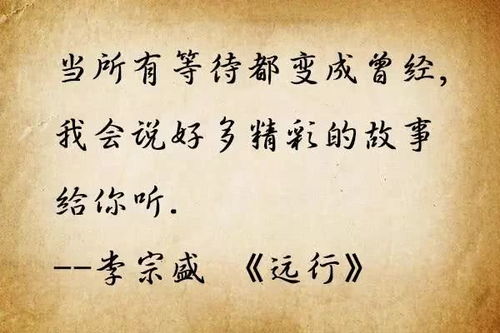 当所有等待都变成曾经,
我会说好多精彩的故事
给你听.
--李宗盛 《远行》